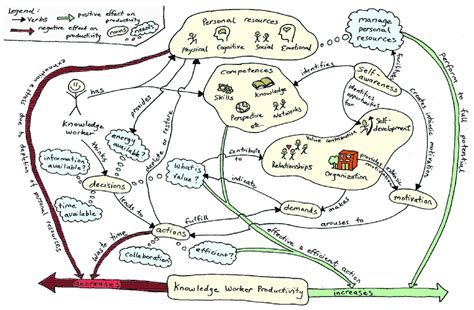 Legend:
verbs
positive effect on
productivity
negative effect on
productivity
nouns
needs
Personal resources
Physical
Cognitive
Social
Emotional
manage
personal
resources
Competences
Skills
Knowledge
Perspective
etc..
Networks
Self-
awareness
identifies
identifies
opportunities
for
Self-
development
Value
Relationships
Organization
has
Knowledge
worker
provides
or restore
energy
available?
thinks
information
available?
decisions
time
available?
leads to
What is
value?
contribute
to
indicate
demands
makes
arouses to
motivation
creates
intrinsic
motivation
Perform to full potential
actions
fulfill
collaboration
efficient?
effective & efficient action
due to depletion of
personal resources
decreases
Knowledge Worker Productivity
increases